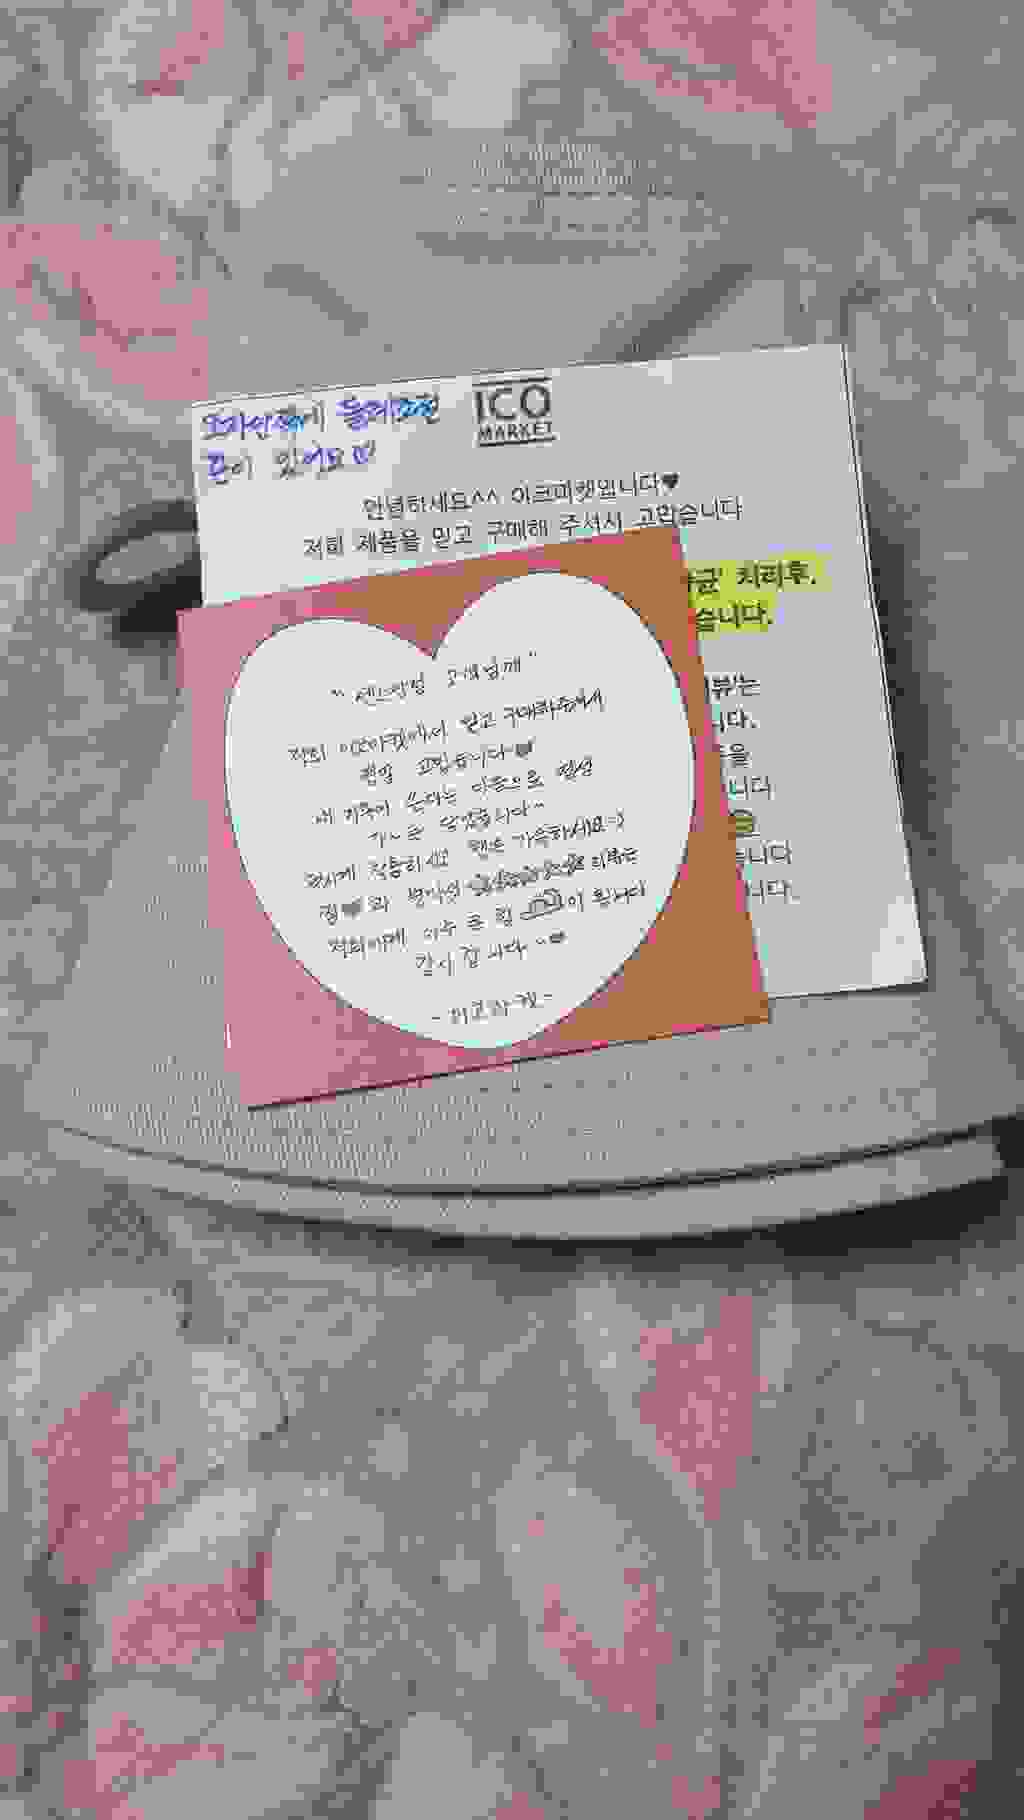 모자안쪽에 둘레조절
끈이 있어요
ICO
MARKET
안녕하세요^^ 이코마켓입니다♥
저희 제품을 믿고 구매해 주셔서 고맙습니다
균' 처리후,
습니다.
뷰'는
니다.
을
니다
습니다
니다.
" 센스쟁이 고객님께 "
저희 이코마켓에서 믿고 구매해주셔서
정말 고맙습니다♥
내 가족이 쓴다는 마음으로 정성
가~득 담았습니다~
쓰시게 착용하시고 행복 가득하세요:)
리뷰는
저희에게 아주 큰 힘 이 됩니다
감사합니다~♥
- 이코마켓 -